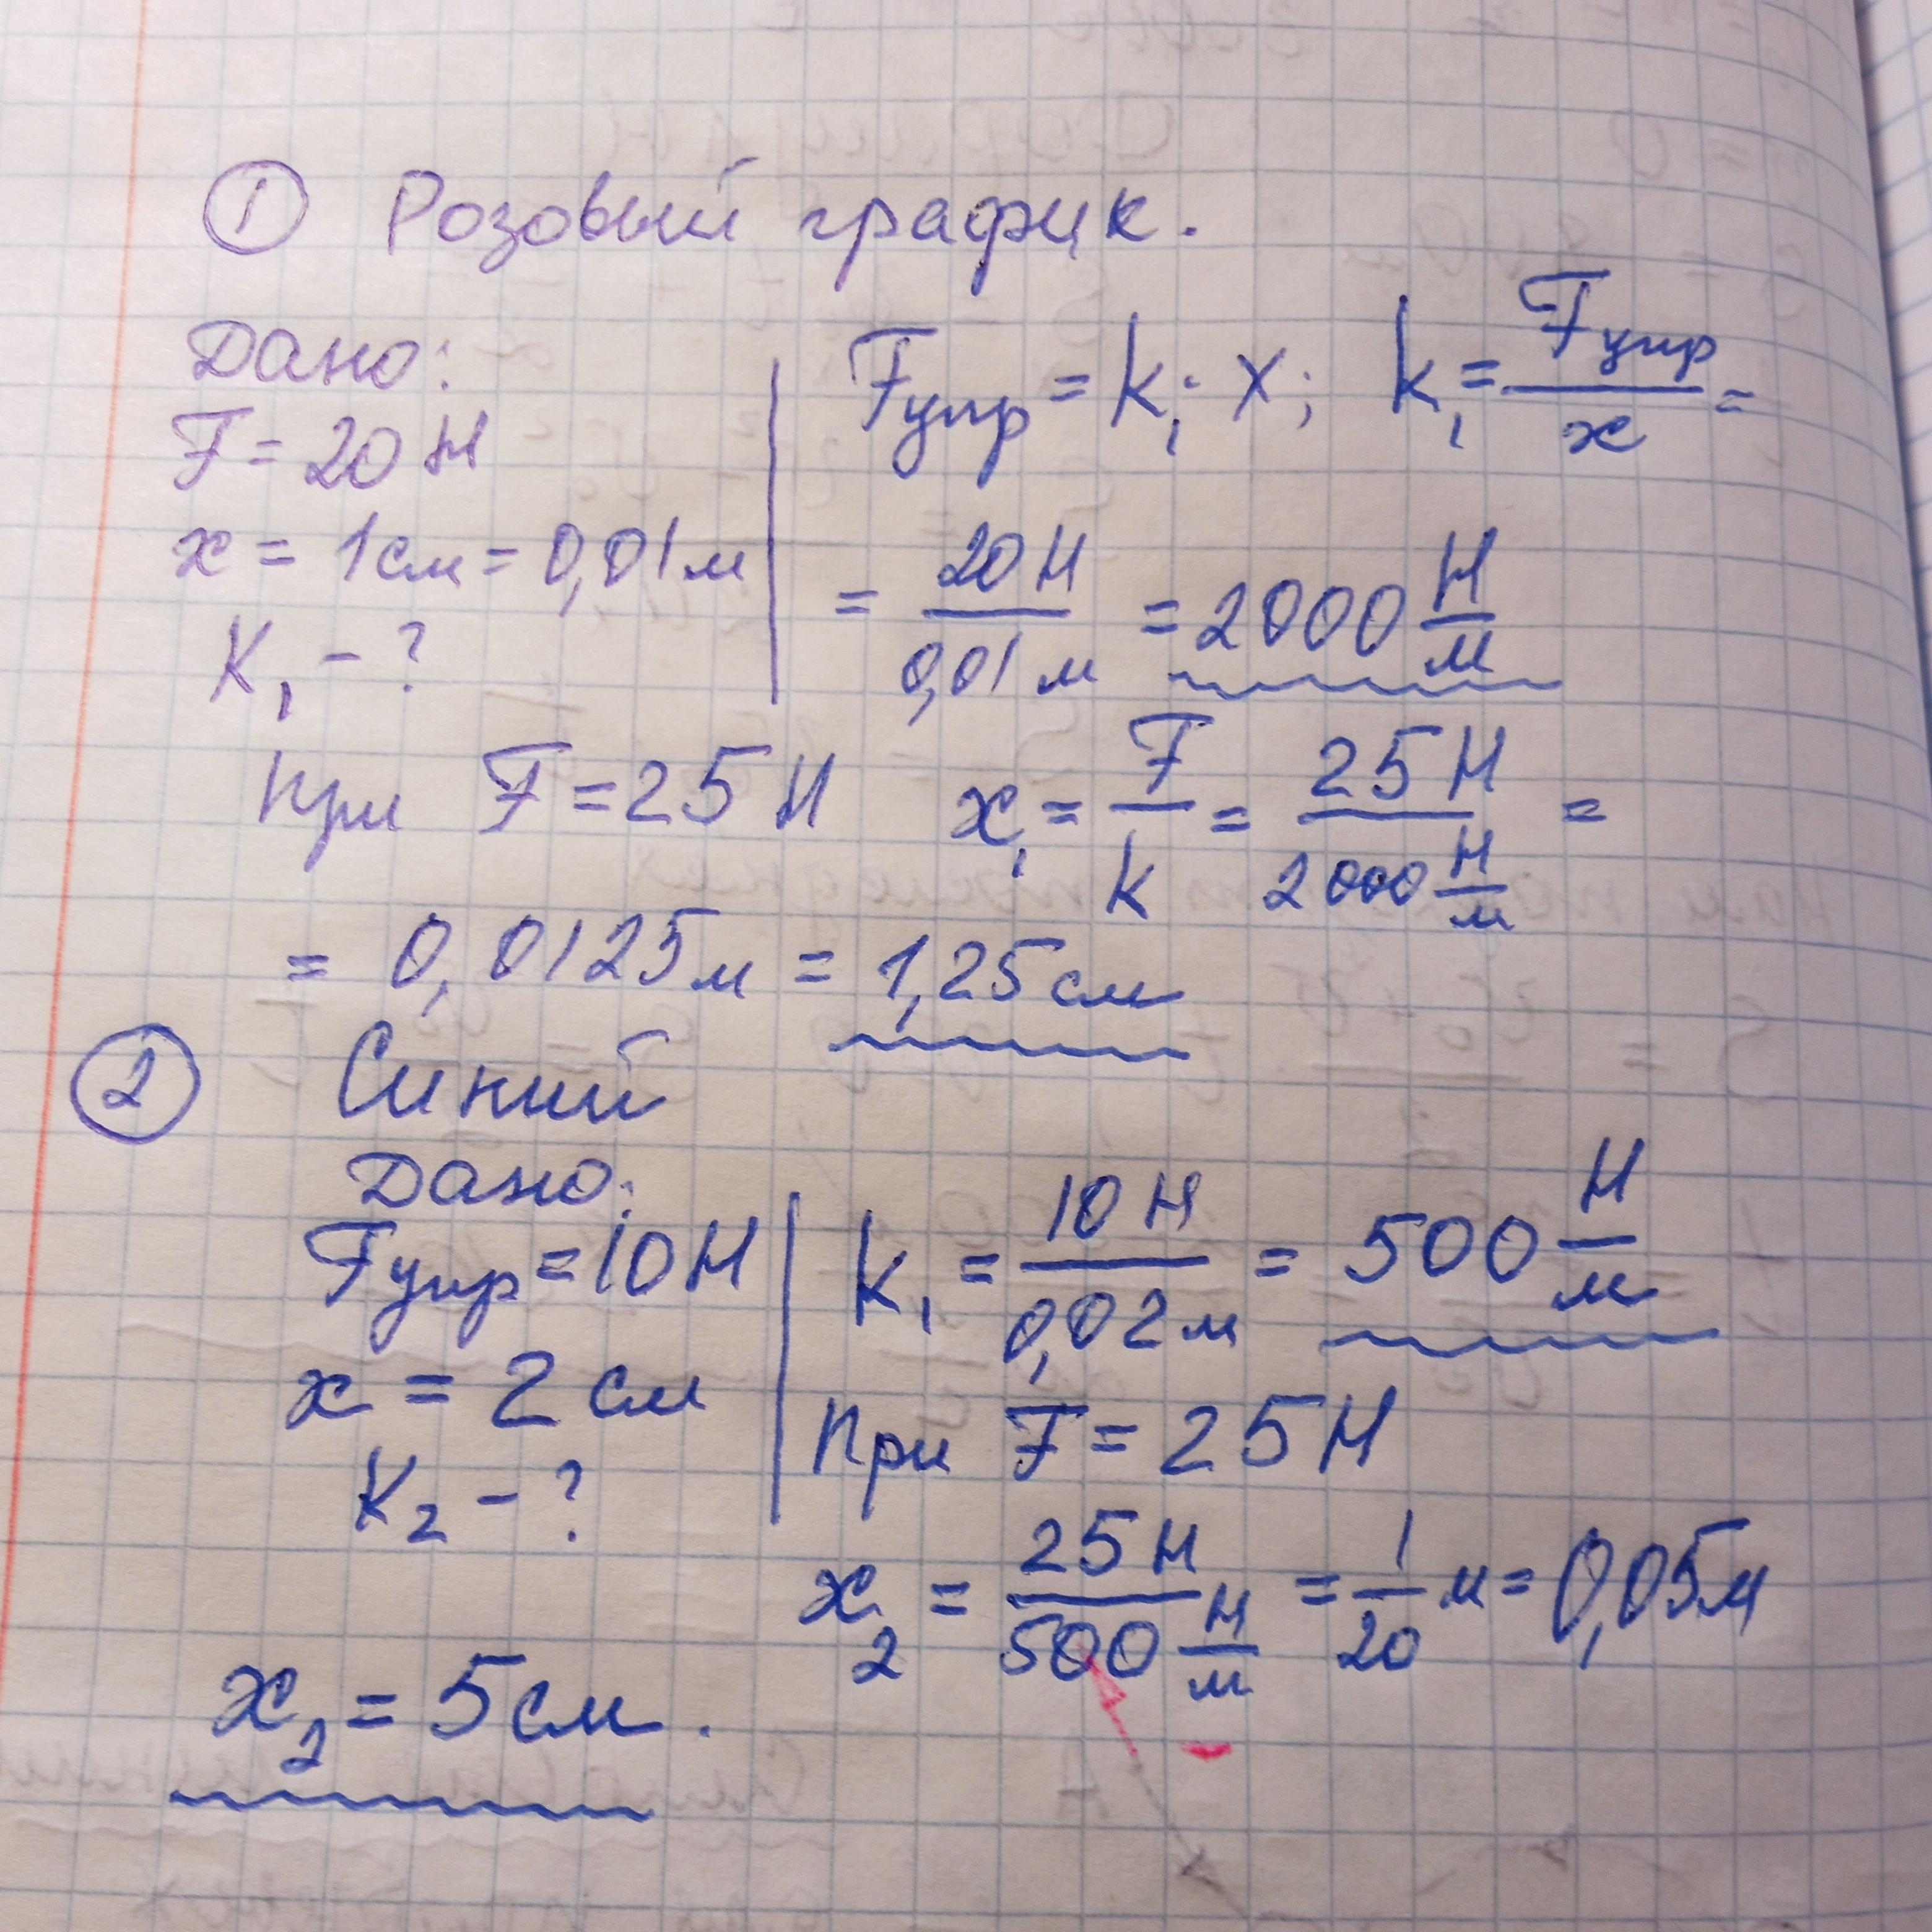 ① Розовый график.
Дано:
F = 20 Н
x = 1 см = 0,01 м
K₁ – ?
Fупр = k₁ · x; k₁ = Fупр / x =
= 20 Н / 0,01 м = 2000 Н/м
при F = 25 Н x₁ = F / k = 25 Н / 2000 Н/м =
= 0,0125 м = 1,25 см
② Синий
Дано:
Fупр = 10 Н
x = 2 см
K₂ – ?
k₁ = 10 Н / 0,02 м = 500 Н/м
при F = 25 Н
x₂ = 25 Н / 500 Н/м = 1/20 м = 0,05 м
x₂ = 5 см.